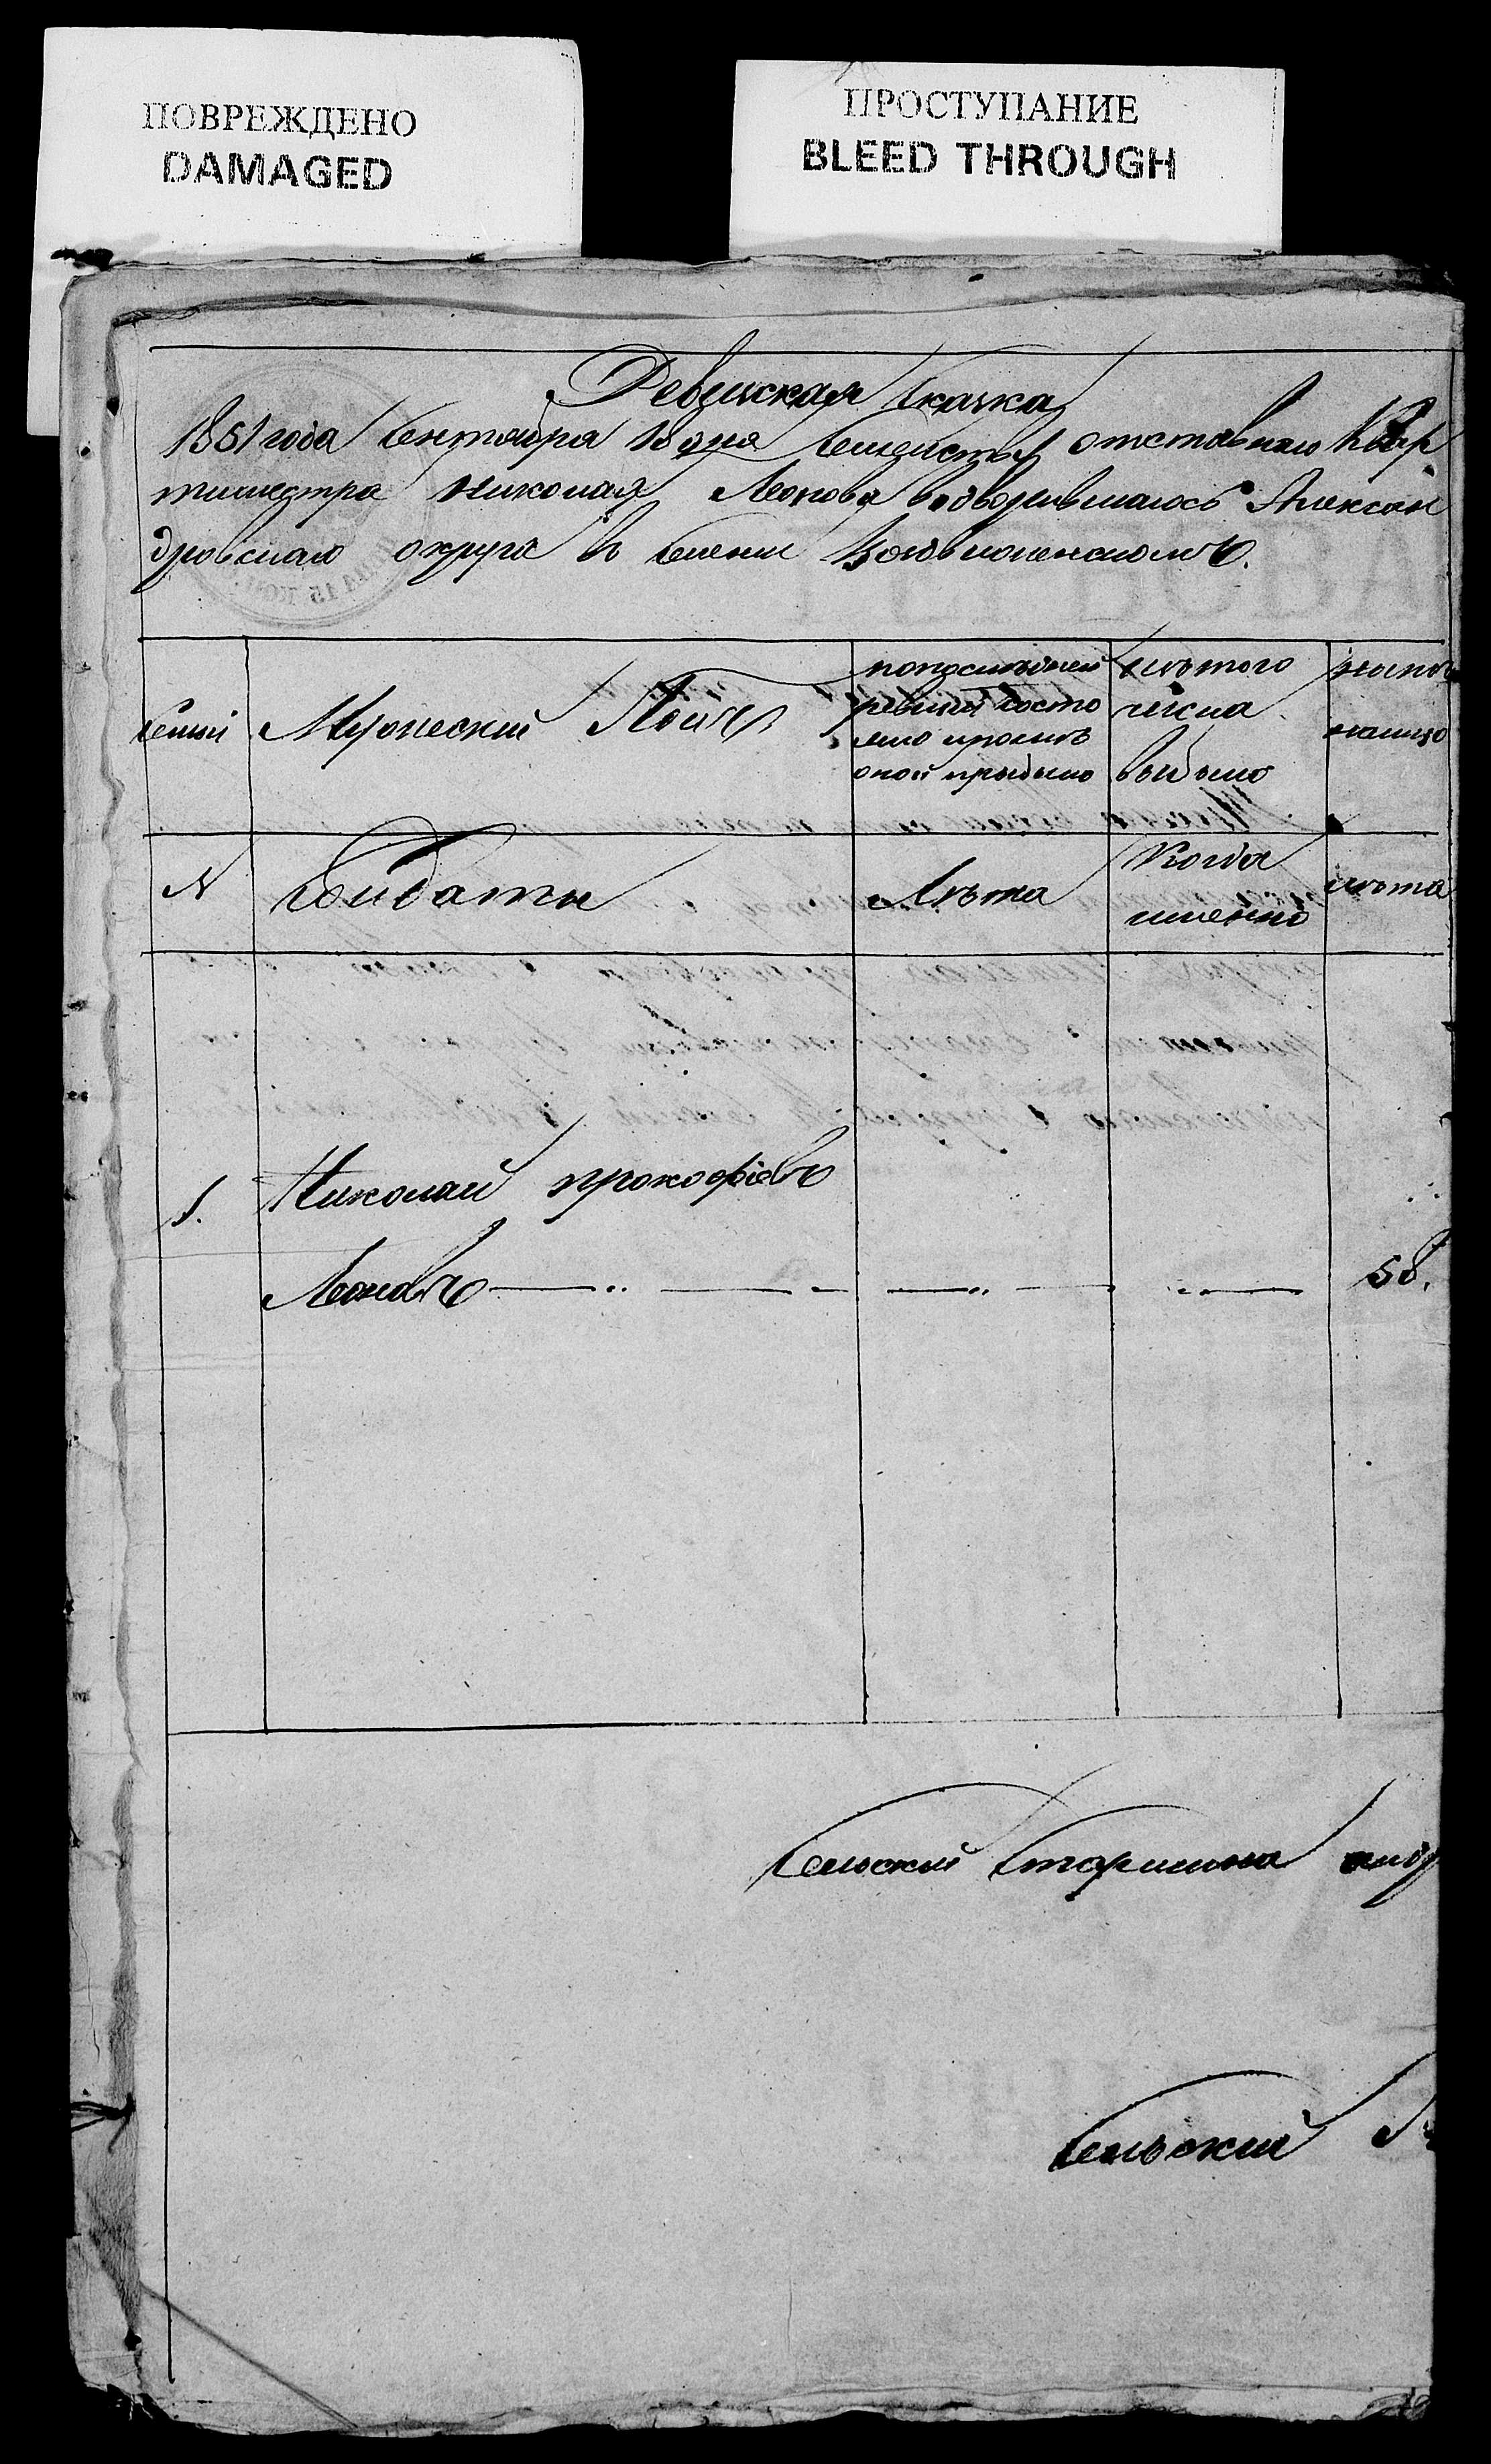 ПОВРЕЖДЕНО
DAMAGED
ПРОСТУПАНИЕ
BLEED THROUGH
Ревизская Скаска
1851 года Сентября 18 дня отставнаго Квар
тимистра Николая Леонова водворившагось Александ
дровскаго округа в селении
семьи
Мужеский Полъ
попоследней
ревизии состо
яло ипослъ
оной прибыло
Изътого
числа
выбыло
нынъ
налицо
N
Солдаты
Лъта
Когда
именно
лъта
1.
Николай прокофіевъ
Леоновъ
58.
Сельский Старшина
Сельский